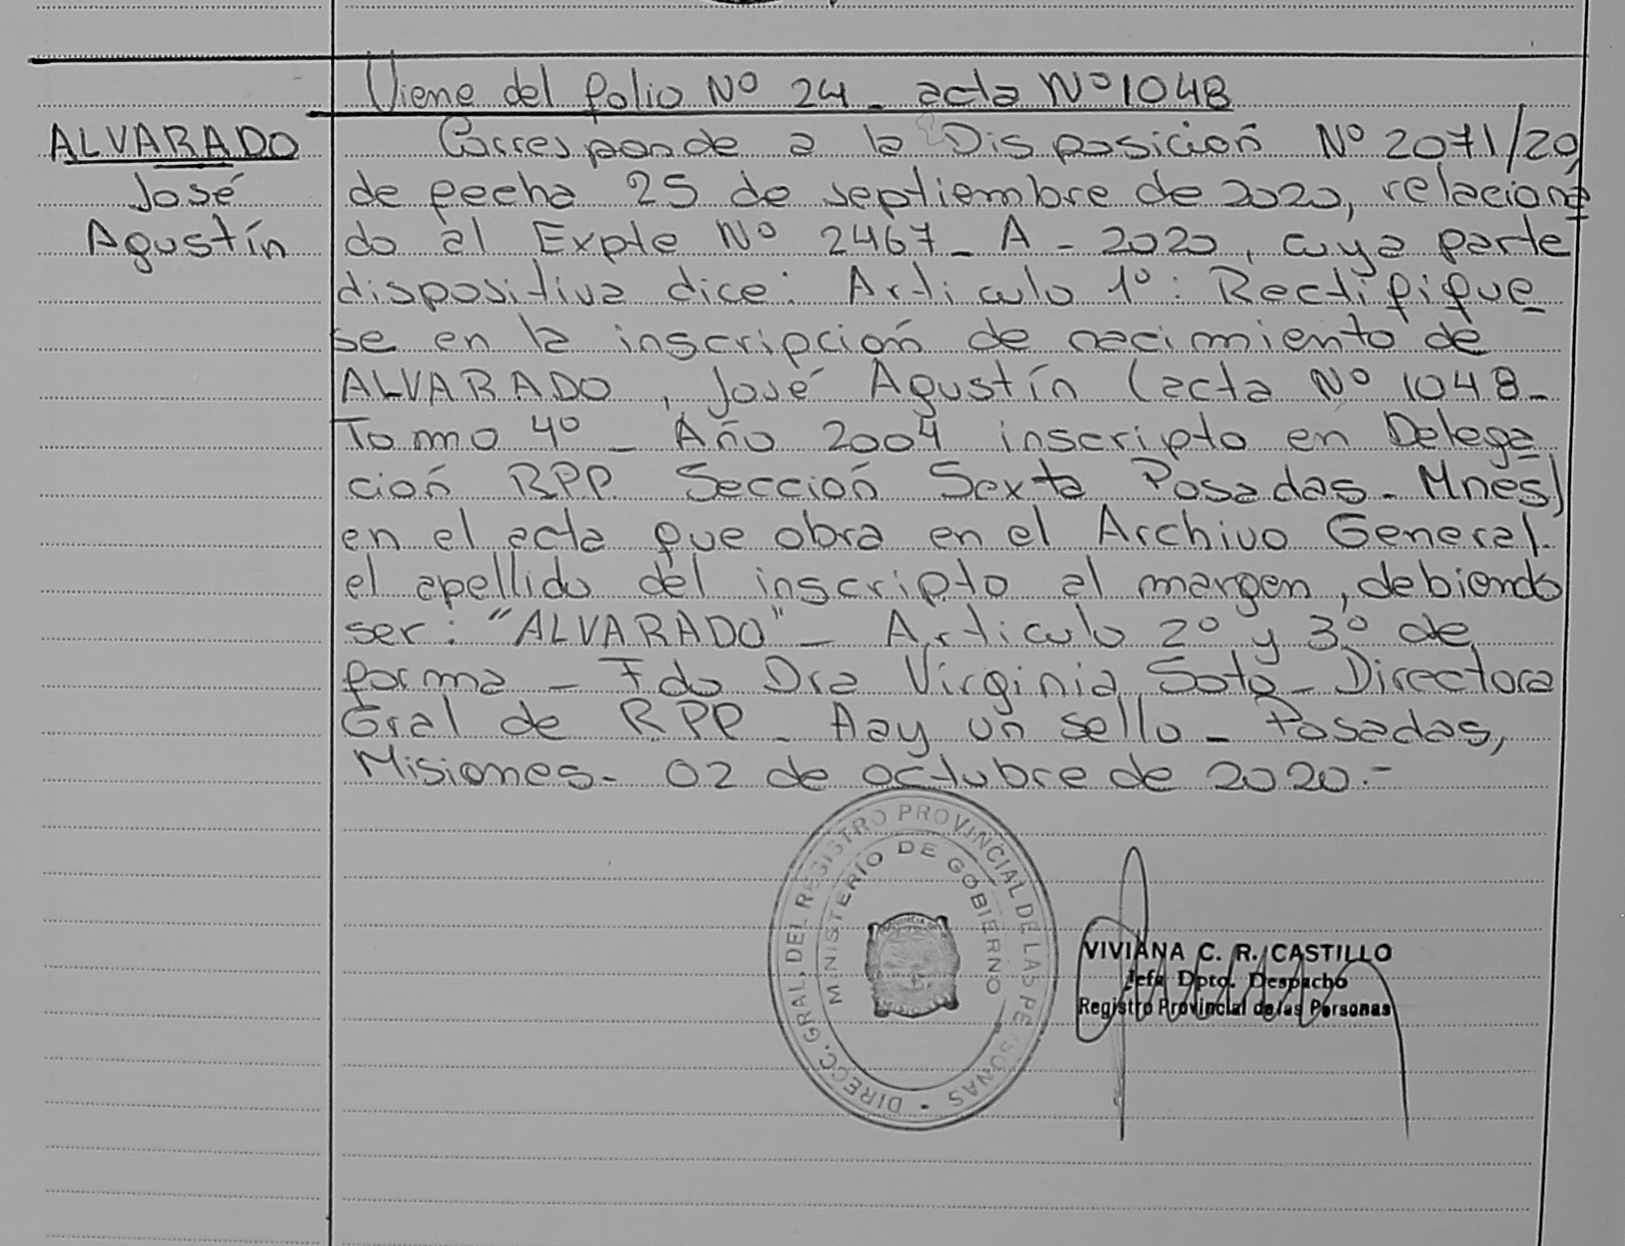 Viene del folio Nº 24 - acta Nº 1048
ALVARADO
José
Agustín
Corresponde a la Disposición Nº 2071/20,
de fecha 25 de septiembre de 2020, relaciona
do al Expte Nº 2467 - A - 2020, cuya parte
dispositiva dice: Articulo 1º: Rectifique
se en la inscripción de nacimiento de
ALVARADO, José Agustín (acta Nº 1048 -
Tomo 4º - Año 2004 inscripto en Delega
ción RPP. Sección Sexta Posadas - Mnes)
en el acta que obra en el Archivo General.
el apellido del inscripto al margen, debiendo
ser: "ALVARADO" - Articulo 2º y 3º de
forma - Fdo Dra Virginia Soto - Directora
Gral de RPP - Hay un sello - Posadas,
Misiones - 02 de octubre de 2020.-
DIRECC. GRAL. DEL REGISTRO PROVINCIAL DE LAS PERSONAS
MINISTERIO DE GOBIERNO
VIVIANA C. R. CASTILLO
Jefa Dpto. Despacho
Registro Provincial de las Personas